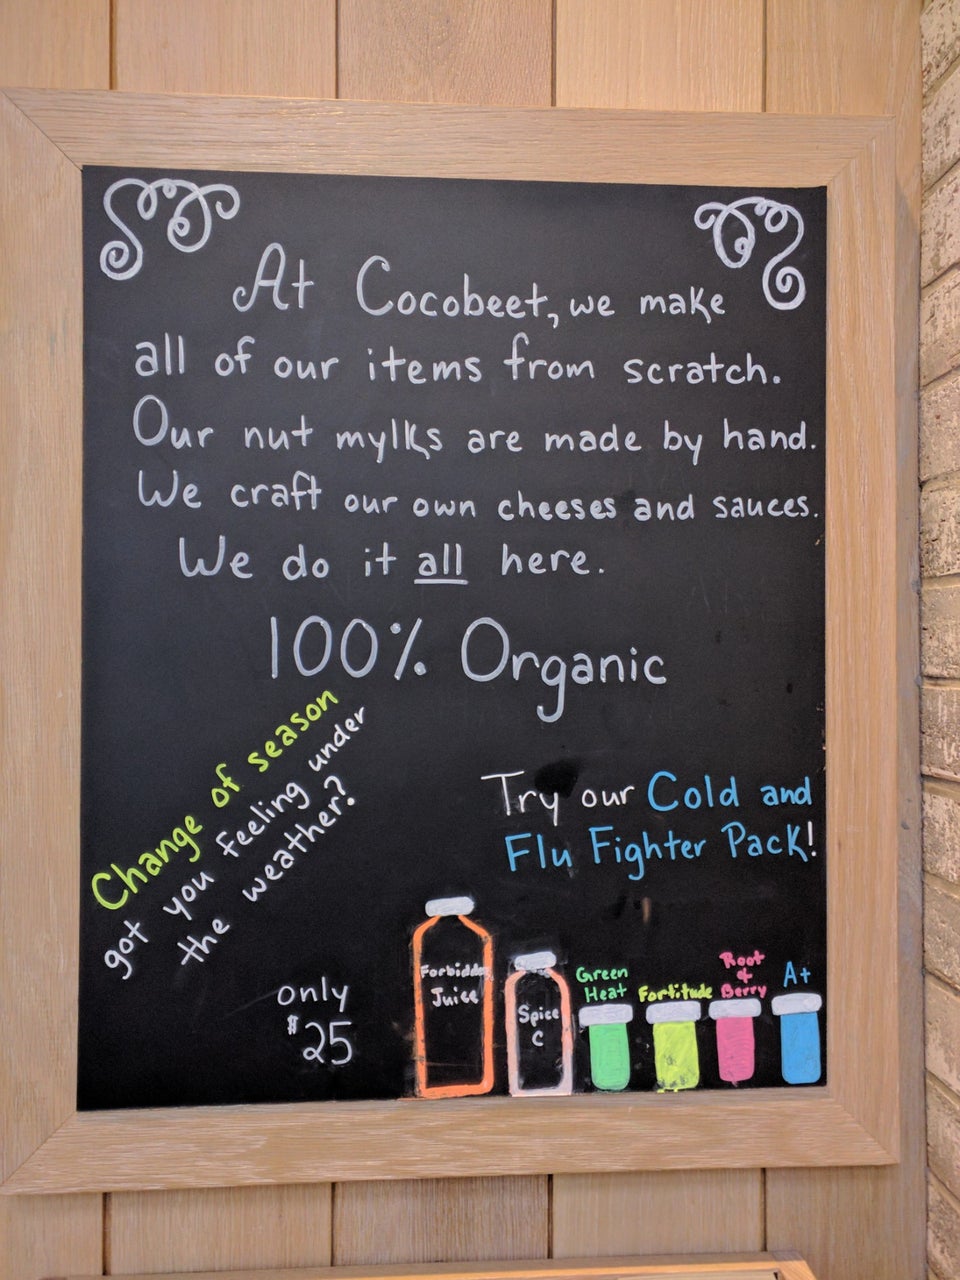 At Cocobeet, we make
all of our items from scratch.
Our nut mylks are made by hand.
We craft our own cheeses and sauces.
We do it all here.
100% Organic
Change of season
got you feeling under
the weather?
Try our Cold and
Flu Fighter Pack!
only
$25
Forbidden
Juice
Spice
C
Green
Heat
Fortitude
Root
+
Berry
A+